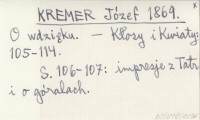 KREMER Józef 1869.
O wdzięku. — Kłosy i Kwiaty:
105-114.
S. 106-107: impresje z Tatr
i o góralach.